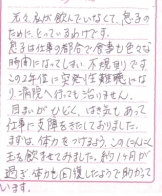 元々私が飲んでいなくて、息子の
ためにとっているわけです。
息子は仕事の都合で食事も色々な
時間になってしまい不規則です。
この2年位に突発性難聴にな
り病院へ行っても治りません。
目まいがひどく、はき気もあって
仕事に支障をきたしておりました。
まずは、体力をつけようと、このにんにく
玉を飲ませてみました。約1ヶ月が
過ぎ体力も回復したようで助かって
います。